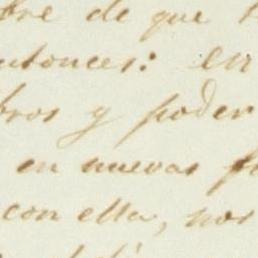 bre de que
entonces: en
bros y poder
en nuevas
con ella, nos